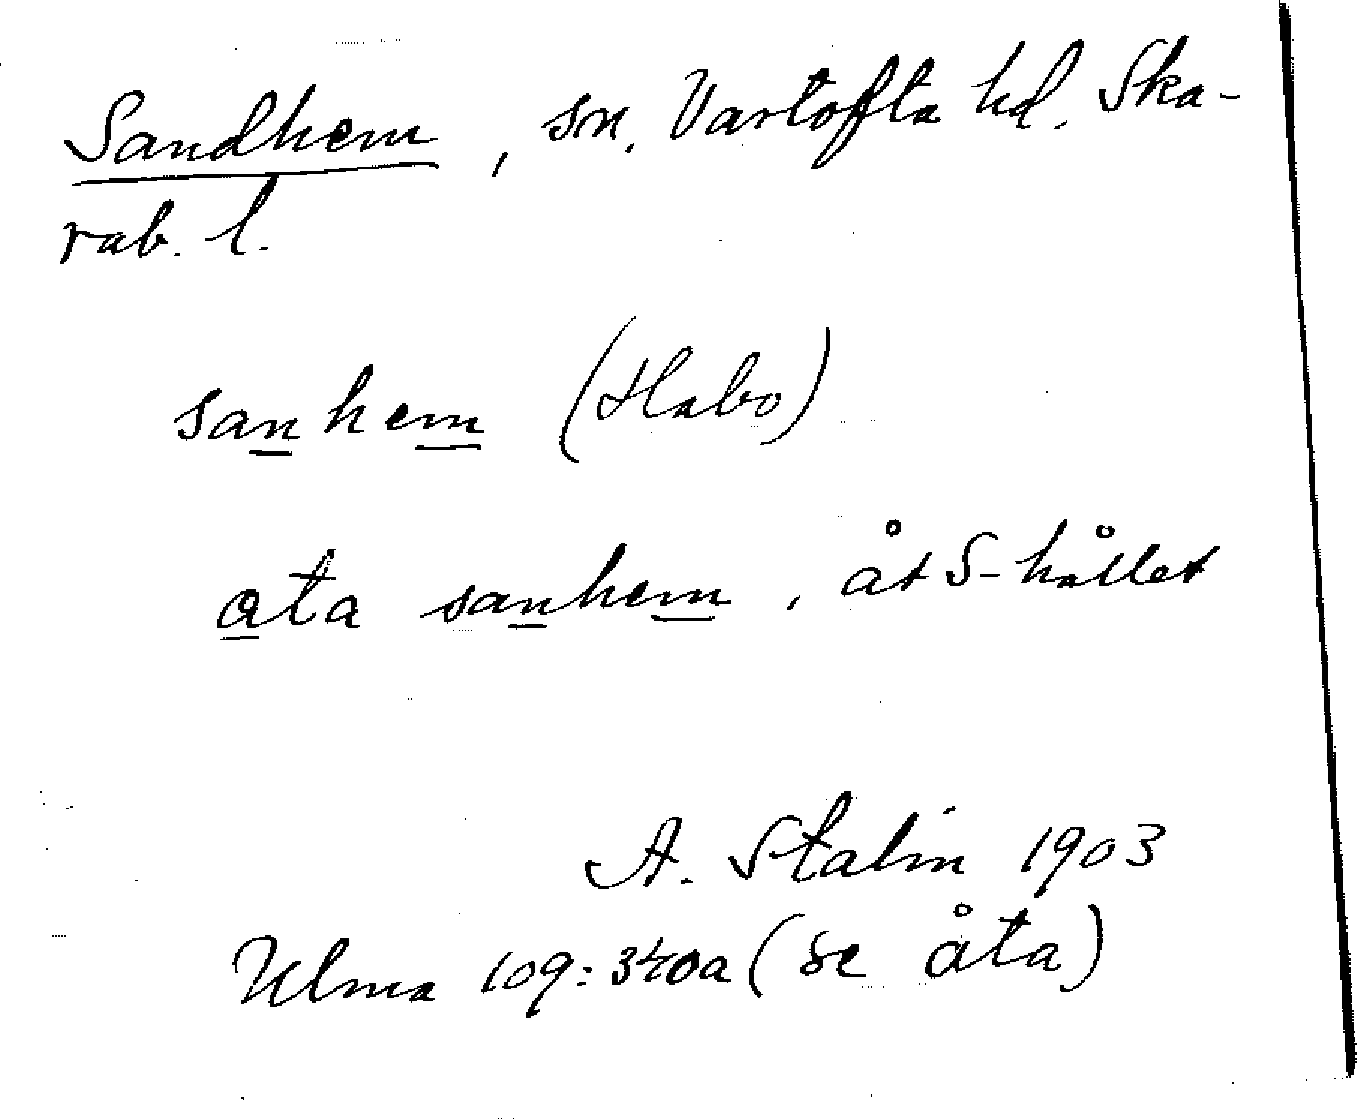 Sandhem, sn. Vartofta hd. Ska-
rab. l.
sanhem (Habo)
ata sanhem, åt S-hållet
A. Stalin 1903
Ulma 109:340a (se åta)